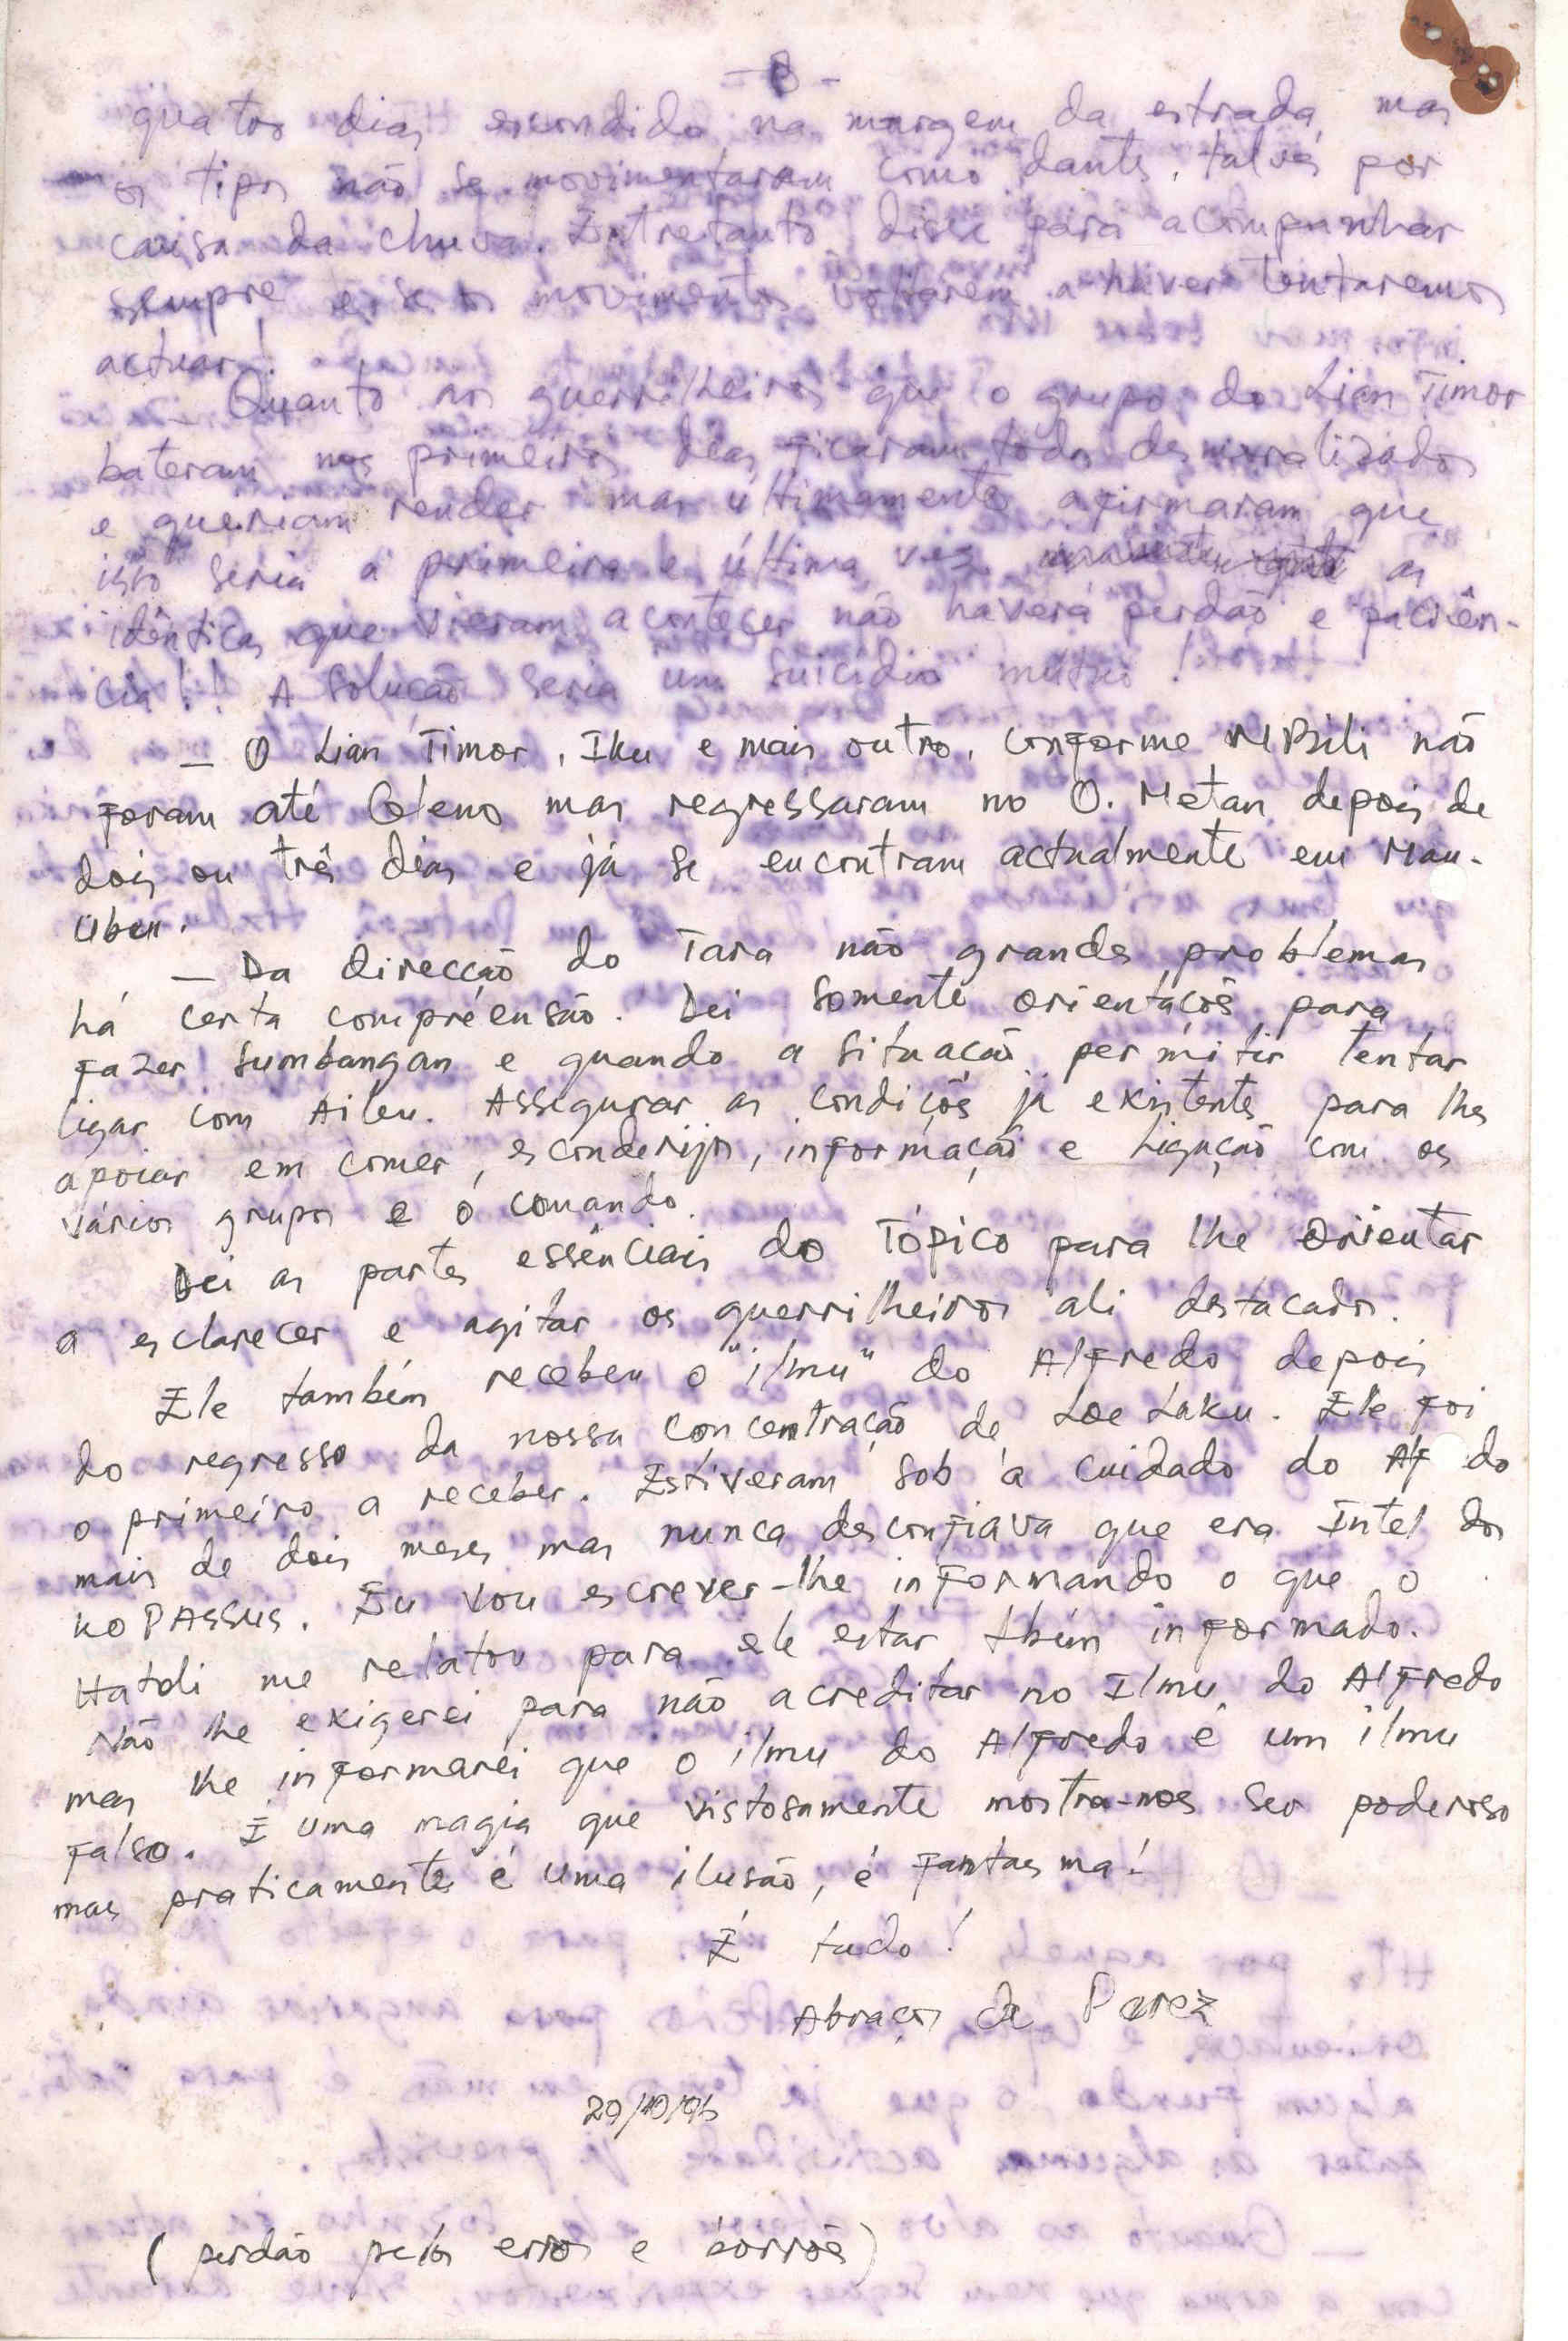 - 8 -
quatro dias escondido na margem da estrada, mas
os tipos não se movimentaram como dante, talvés por
causa da chuva. Entretanto disse para acompanhar
sempre e se os movimentos voltarem a haver tentaremos
actuar!
_ Quanto aos guerrilheiros que o grupo do Lian Timor
bateram nos primeiros dias ficaram todos desmoralizados
e queriam render mas últimamente afirmaram que
isto seria a primeira e última vez as
idênticas que vieram acontecer não haverá perdão e paciên-
cia!! A solução seria um suicídio mútuo!
_ O Lian Timor, Iku e mais outro, conforme MBili não
foram até Gleno mas regressaram no O. Metan depois de
dois ou três dias e já se encontram actualmente em Mau-
Uben.
_ Da direcção do Tara não grandes problemas
há certa compreensão. Dei somente orientações para
fazer sumbangan e quando a situação permitir tentar
ligar com Aileu. Assegurar as condições já existentes para lhes
apoiar em comer, esconderijos, informação e ligação com os
vários grupos e o comando.
Dei as partes essênciais do Tópico para lhe orientar
a esclarecer e agitar os guerrilheiros ali destacados.
Ele também recebeu o "ilmu" do Alfredo depois
do regresso da nossa concentração de Loe Laku. Ele foi
o primeiro a receber. Estiveram sob a cuidado do Af do
mais de dois meses mas nunca desconfiava que era Intel dos
KOPASSUS. Eu vou escrever-lhe informando o que o
Hatoli me relatou para ele estar tbém informado.
Não lhe exigerei para não acreditar no Ilmu do Alfredo
mas lhe informarei que o ilmu do Alfredo é um ilmu
falso. É uma magia que vistosamente mostra-nos ser poderoso
mas praticamente é uma ilusão, é fantasma!
É tudo!
Abraços de Perez
29/10/96
(perdão pelos erros e borrões)